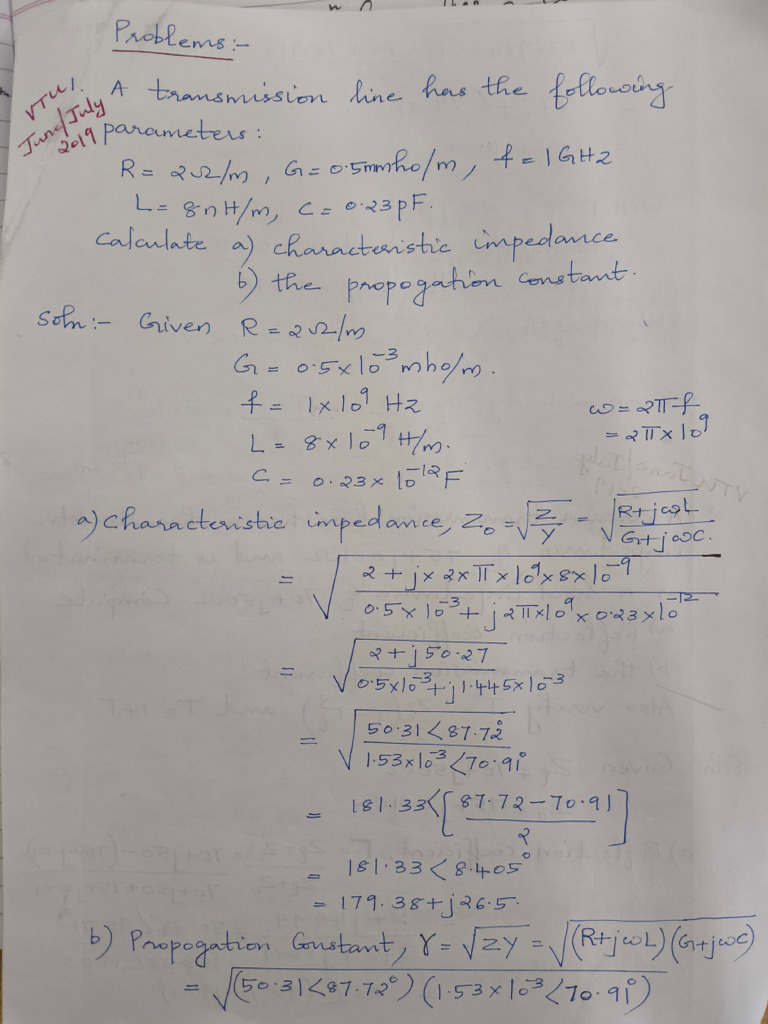 Problems:-
VTU
June/July
2019
1. A transmission line has the following
parameters:
R = 2Ω/m, G = 0.5mmho/m, f = 1GHz
L = 8nH/m, C = 0.23pF.
Calculate a) characteristic impedance
b) the propogation constant.
Soln:- Given R = 2Ω/m
G = 0.5×10⁻³ mho/m.
f = 1×10⁹ Hz
ω = 2πf
= 2π×10⁹
L = 8×10⁻⁹ H/m.
C = 0.23×10⁻¹²F
a) Characteristic impedance, Z₀ = √(Z/Y) = √((R+jωL)/(G+jωC.))
= √((2+j×2×π×10⁹×8×10⁻⁹)/(0.5×10⁻³+j2π×10⁹×0.23×10⁻¹²))
= √((2+j50.27)/(0.5×10⁻³+j1.445×10⁻³))
= √((50.31<87.72°)/(1.53×10⁻³<70.91°))
= 181.33<[(87.72-70.91)/2]
= 181.33<8.405°
= 179.38+j26.5.
b) Propogation Constant, γ = √ZY = √((R+jωL)(G+jωC))
= √((50.31<87.72°)(1.53×10⁻³<70.91°))